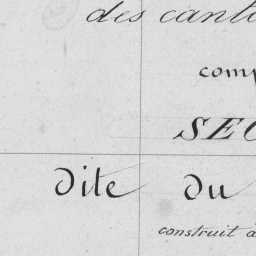 des cant
com
SEC
dite du
construit à